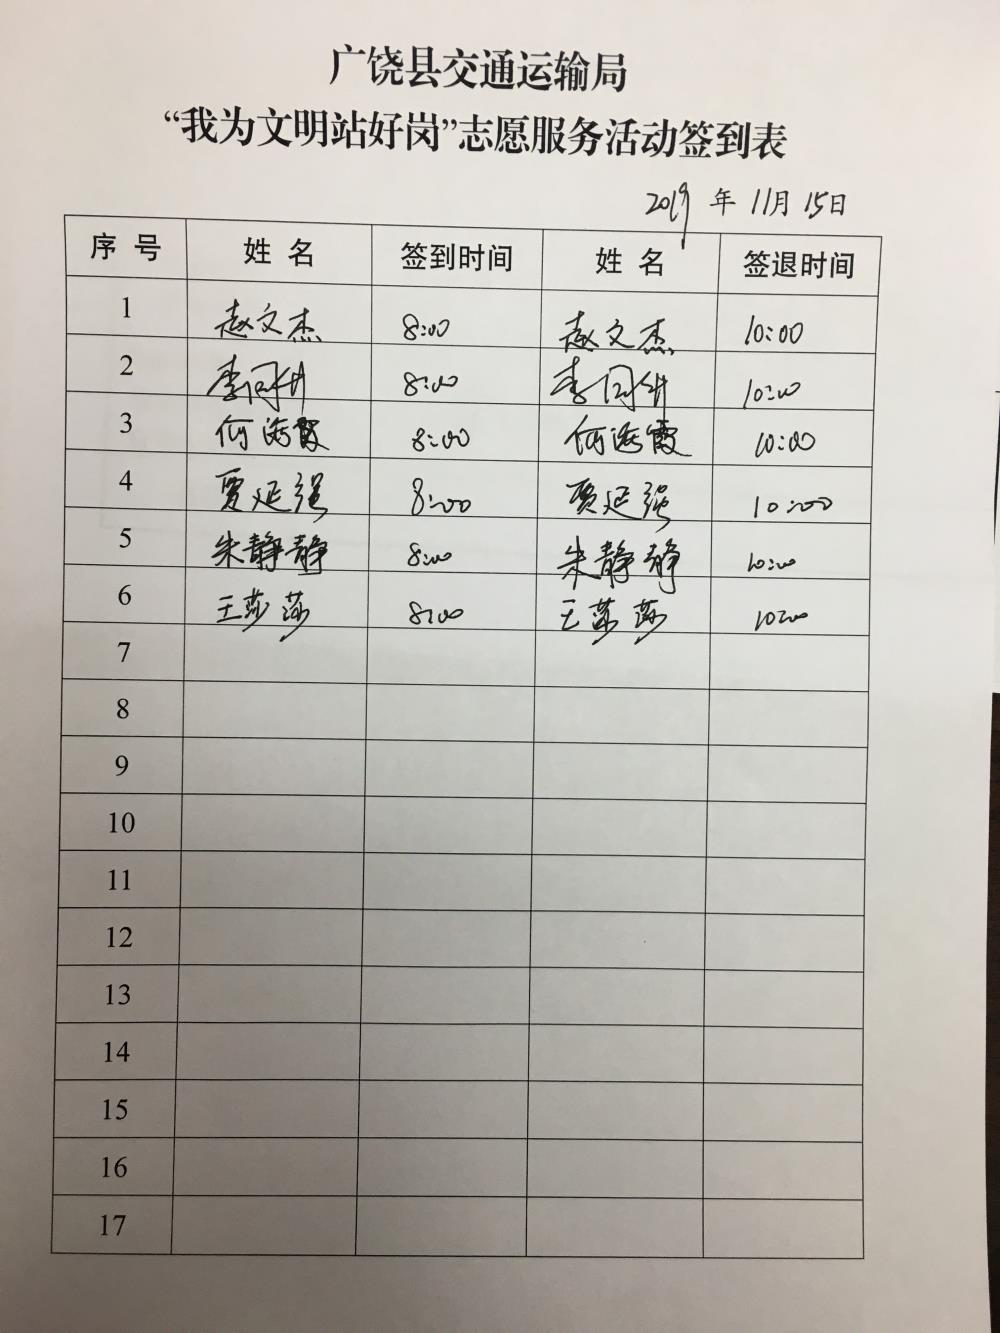 广饶县交通运输局
“我为文明站好岗”志愿服务活动签到表
2019 年 11月 15日
序 号 姓 名 签到时间 姓 名 签退时间
1 赵文杰 8:00 赵文杰 10:00
2 李同升 8:00 李同升 10:00
3 何海霞 8:00 何海霞 10:00
4 贾延强 8:00 贾延强 10:00
5 朱静静 8:00 朱静静 10:00
6 王莎莎 8:00 王莎莎 10:00
7
8
9
10
11
12
13
14
15
16
17